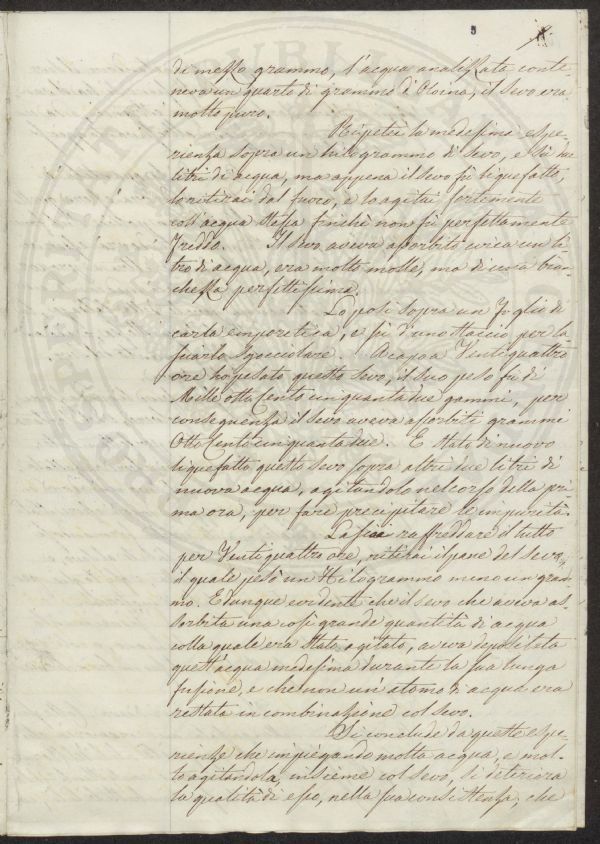 di mezzo grammo, l'acqua analizzata conte-
neva un quarto di grammo d'Oleina, il sevo era
molto puro.
Ripetei la medesima espe-
rienza sopra un kilogrammo di sevo, e su due
litri di acqua, ma appena il sevo fù liquefatto,
lo ritirai dal fuoco, e lo agitai fortemente
coll'acqua stessa finchè non fù perfettamente
freddo. Il sevo aveva assorbito circa un li-
tro di acqua, era molto molle, ma di una bian-
chezza perfettissima.
Lo posi sopra un foglio di
carta emporetica, e sù d'uno staccio per la-
sciarlo sgocciolare. A capo a Ventiquattro
ore ho pesato questo sevo, il suo peso fù di
Mille otto cento cinquantadue gammi, per
conseguenza il sevo aveva assorbiti grammi
Otto Cento cinquantadue. È stato di nuovo
liquefatto questo sevo sopra altri due litri di
nuova acqua, agitandolo nel corso della pri-
ma ora, per fare precipitare le impurità.
Lasciai raffreddare il tutto
per Ventiquattro ore, ritirai il pane del sevo,
il quale pesò un Kilogrammo meno un gram-
mo. È dunque evidente che il sevo che aveva as-
sorbita una così grande quantità di acqua
colla quale era stato agitato, aveva depositata
quest'acqua medesima durante la sua lunga
fusione, e che non un'atomo di acqua era
restata in combinazione col sevo.
Si conclude da queste espe-
rienze che impiegando molta acqua, e mol-
to agitandola, insieme col sevo, si deteriora
la qualità di esso, nella sua consistenza, che